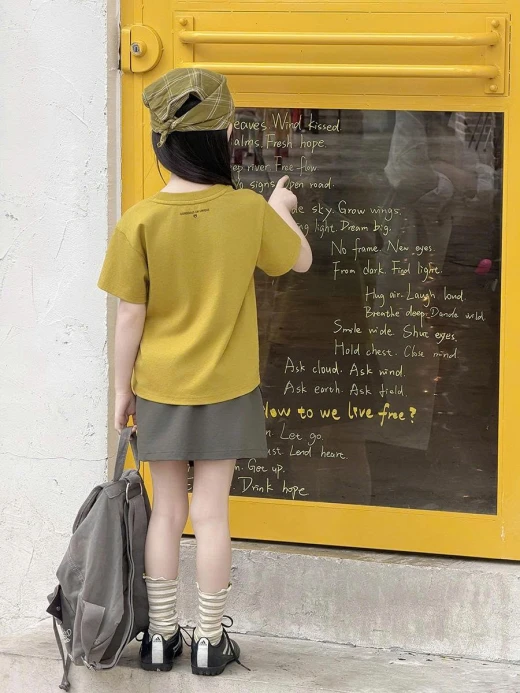 eaves. Wind kissed.
alms. Fresh hope.
ep river. Free flow
o signs. Open road.
de sky. Grow wings.
ng light. Dream big.
No frame. New eyes.
From dark. Find light.
Hug air. Laugh loud.
Breathe deep. Dance wild.
Smile wide. Shut eyes.
Hold chest. Close mind.
Ask cloud. Ask wind.
Ask earth. Ask field.
How to we live free?
n. Let go.
ust. Lend heart.
n. Get up.
. Drink hope